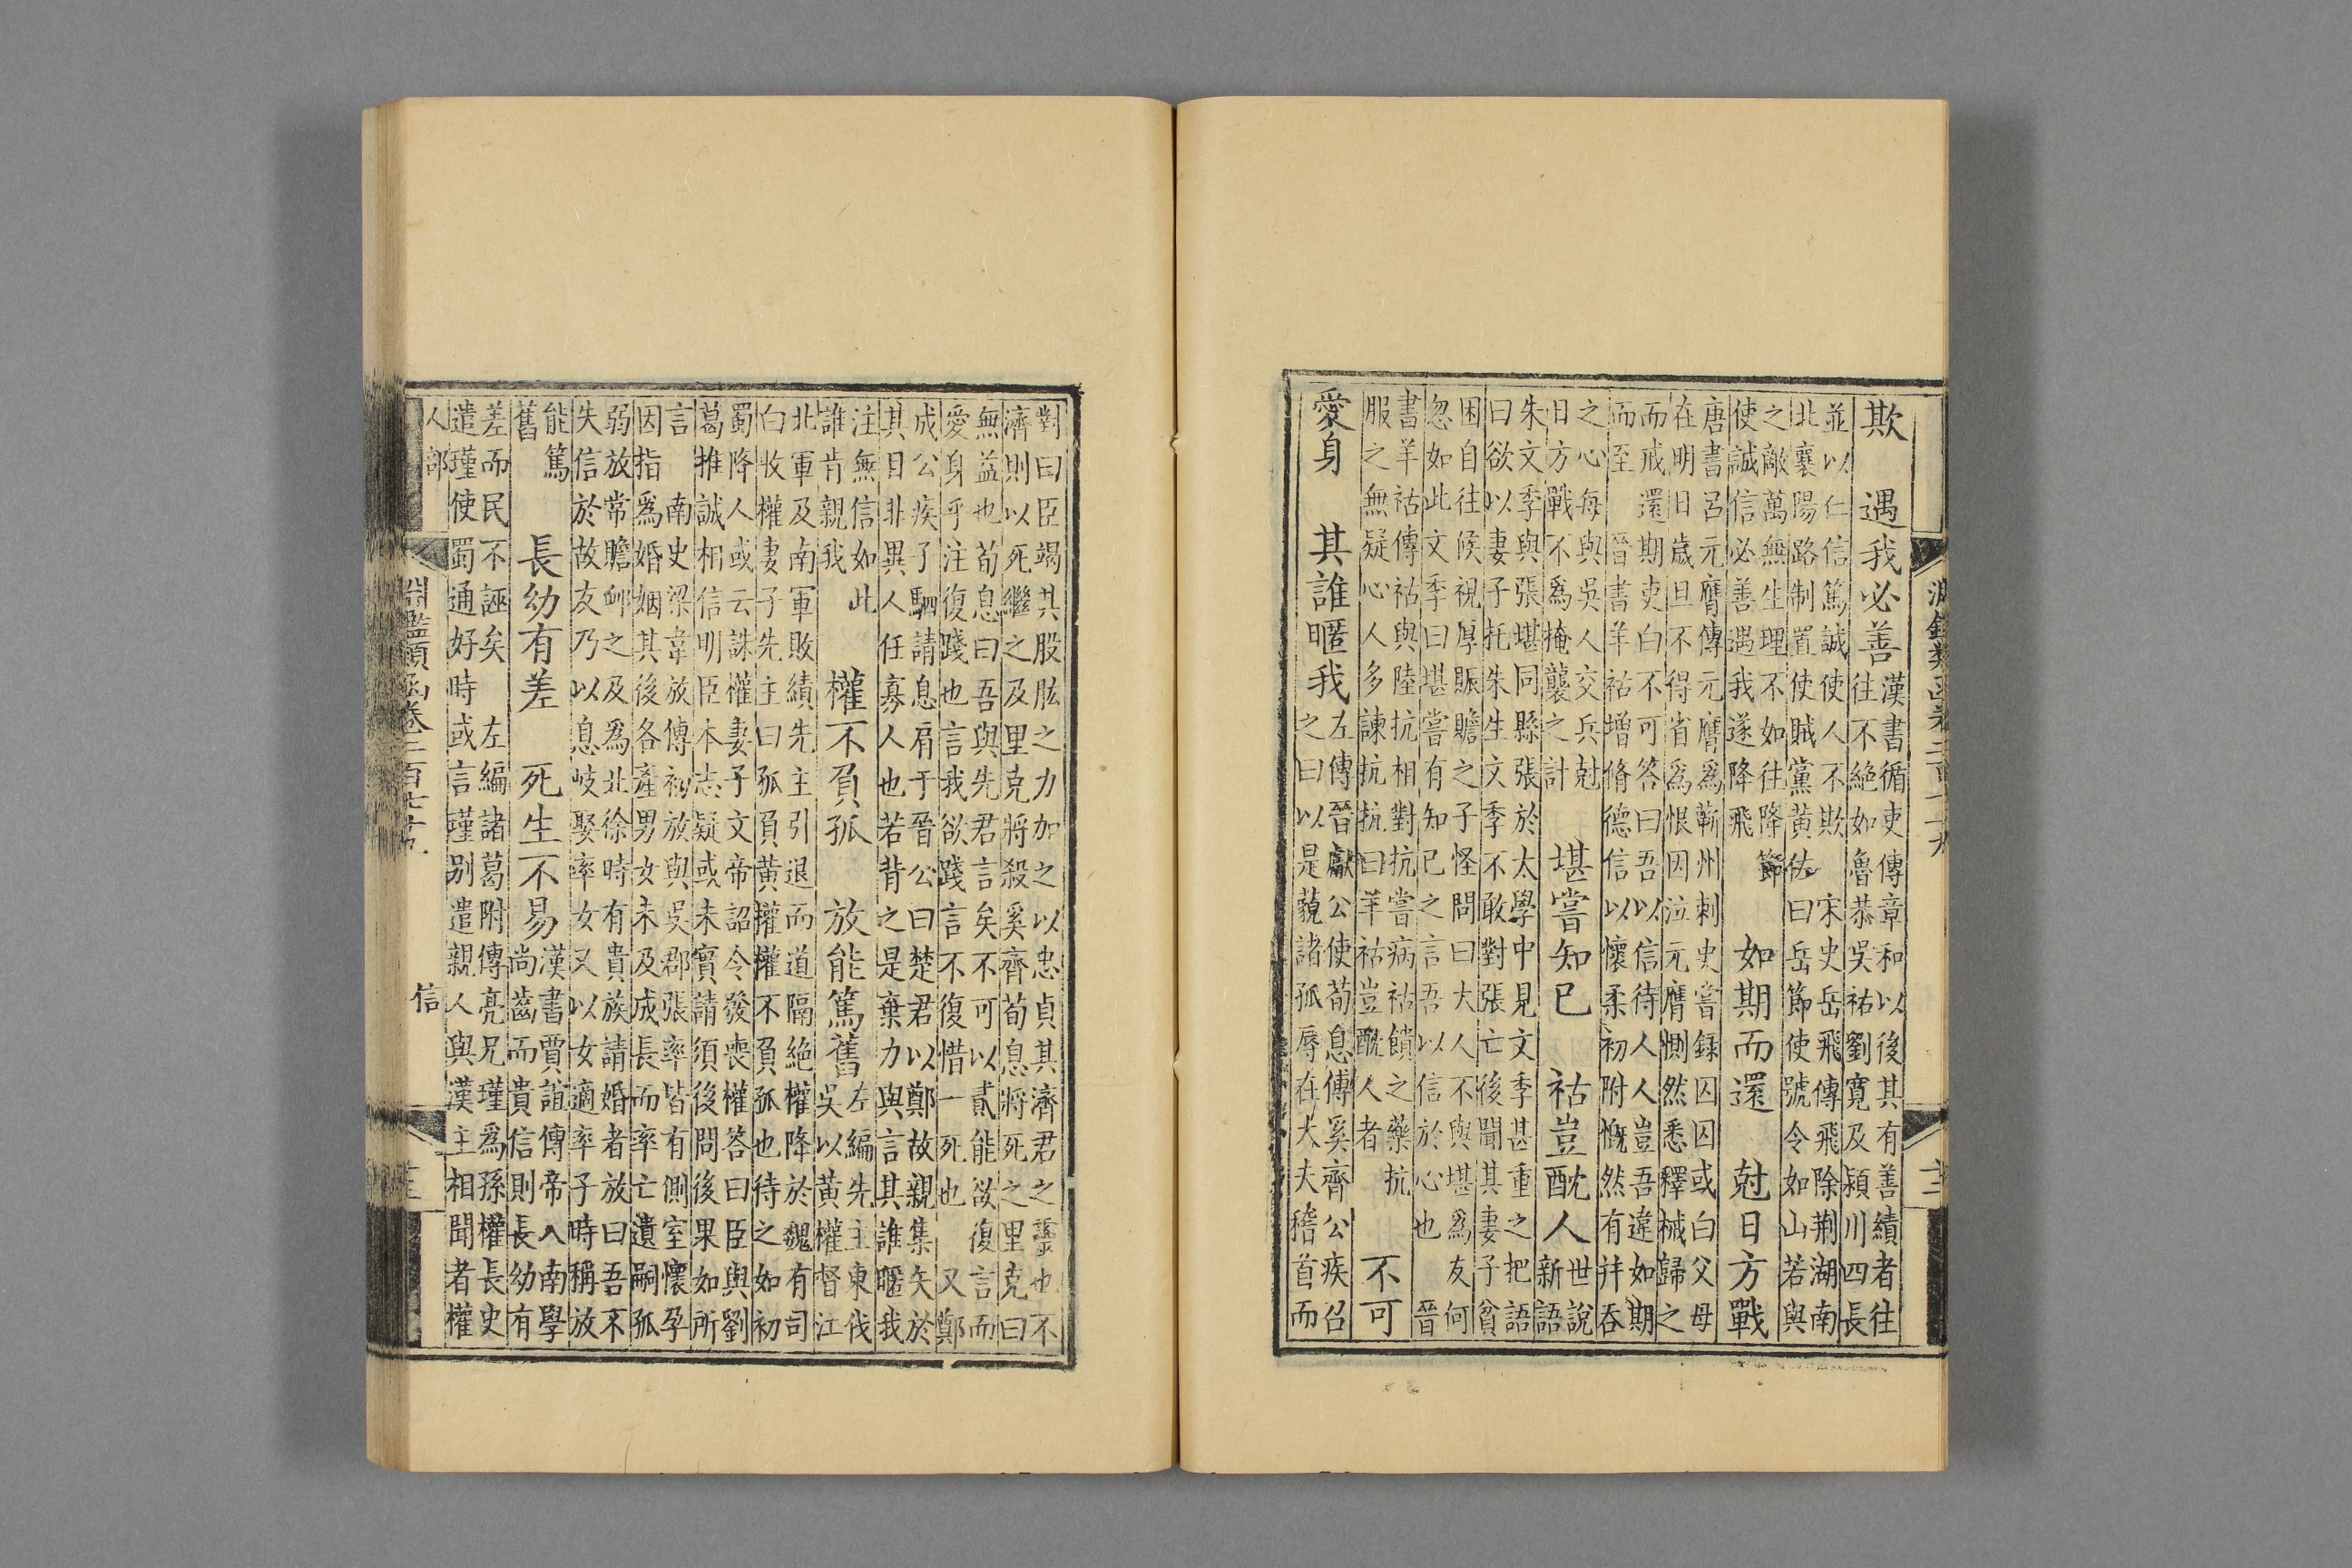 淵鑑類函卷二百七十九
十二
欺　遇我必善
漢書循吏傳章和以後其有善績者往
往不絕如魯恭吳祐劉寬及潁川四長
並以仁信篤誠使人不欺　宋史岳飛傳飛除荆湖南
北襄陽路制置使賊黨黃佐曰岳節使號令如山若與
之敵萬無生理不如往降節
使誠信必善遇我遂降飛
如期而還　尅日方戰
唐書呂元膺傳元膺爲蘄州刺史嘗録囚囚或白父母
在明日歲旦不得省爲恨因泣元膺惻然悉釋械歸之
而戒還期吏白不可答曰吾以信待人人豈吾違如期
而至　晉書羊祜增脩德信以懷柔初附慨然有幷吞
之心每與吳人交兵尅
日方戰不爲掩襲之計
堪嘗知已　祜豈酖人
世說
新語
朱文季與張堪同縣張於太學中見文季甚重之把語
曰欲以妻子托朱生文季不敢對張亡後聞其妻子貧
困自往候視厚賑贍之子怪問曰大人不與堪爲友何
忽如此文季曰堪嘗有知已之言吾以信於心也　晉
書羊祜傳祜與陸抗相對抗嘗病祜饋之藥抗
服之無疑心人多諫抗抗曰羊祜豈酖人者
不可
愛身　其誰暱我
左傳晉獻公使荀息傅奚齊公疾召
之曰以是藐諸孤辱在大夫稽首而
對曰臣竭其股肱之力加之以忠貞其濟君之靈也不
濟則以死繼之及里克將殺奚齊荀息將死之里克曰
無益也荀息曰吾與先君言矣不可以貳能欲復言而
愛身乎注復踐也言我欲踐言不復惜一死也　又鄭
成公疾子駟請息肩于晉公曰楚君以鄭故親集矢於
其目非異人任寡人也若背之是棄力與言其誰暱我
注無信如此
誰肯親我
權不負孤　放能篤舊
左編先主東伐
吳以黃權督江
北軍及南軍敗績先主引退而道隔絶權降於魏有司
白收權妻子先主曰孤負黃權權不負孤也待之如初
蜀降人或云誅權妻子文帝詔令發喪權答曰臣與劉
葛推誠相信明臣本志疑或未實請須後問後果如所
言　南史梁韋放傳初放與吳郡張率皆有側室懷孕
因指爲婚姻其後各產男女未及成長而率亡遺嗣孤
弱放常贍卹之及爲北徐時有貴族請婚者放曰吾不
失信於故友乃以息岐娶率女又以女適率子時稱放
能篤
舊
長幼有差　死生不易
漢書賈誼傳帝入南學
尚齒而貴信則長幼有
差而民不誣矣　左編諸葛附傳亮兄瑾爲孫權長史
遣瑾使蜀通好時或言瑾别遣親人與漢主相聞者權
人部　信
淵鑑類函卷二百七十九